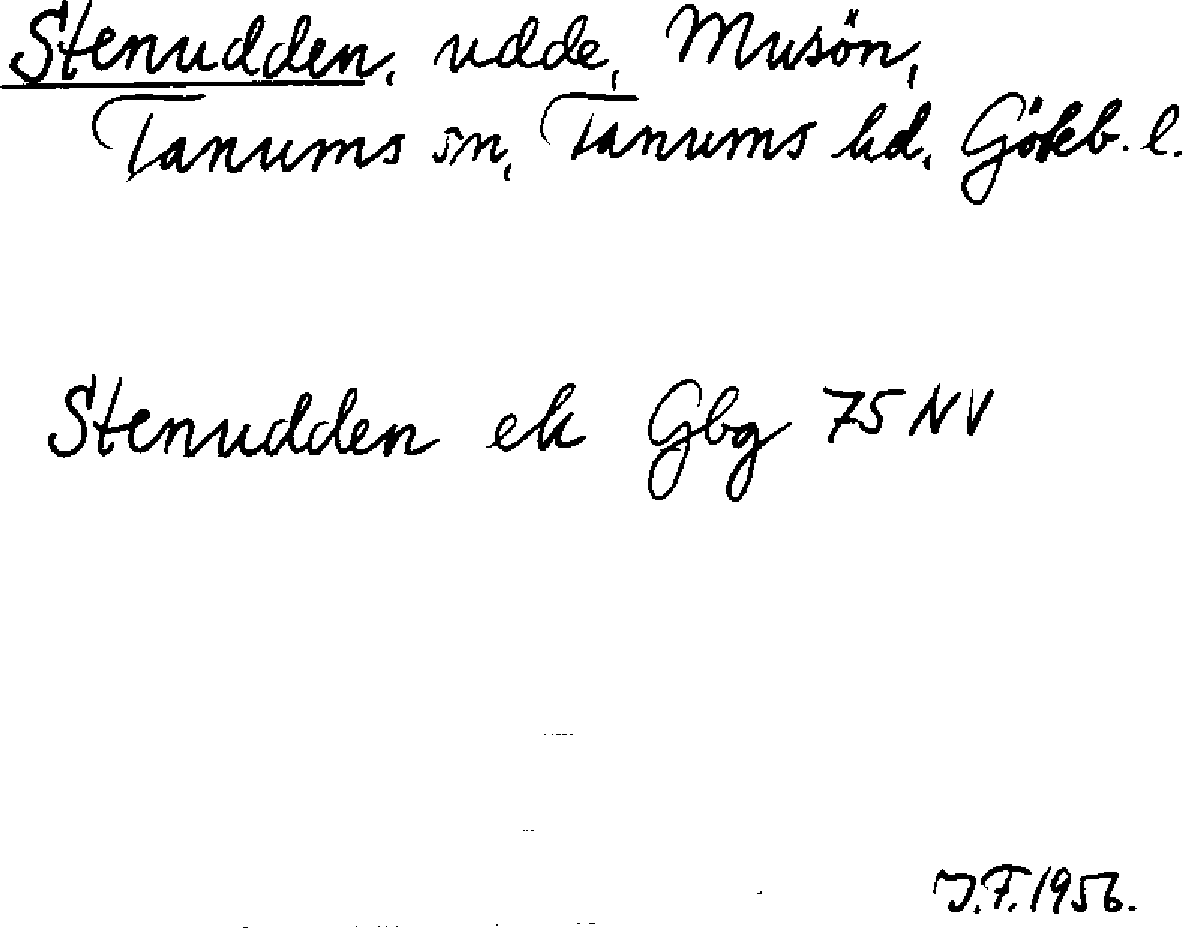 Stenudden, udde, Musön,
Tanums sn, Tanums hd. Göteb. l.
Stenudden ek Gbg 75 NV
J.F. 1956.